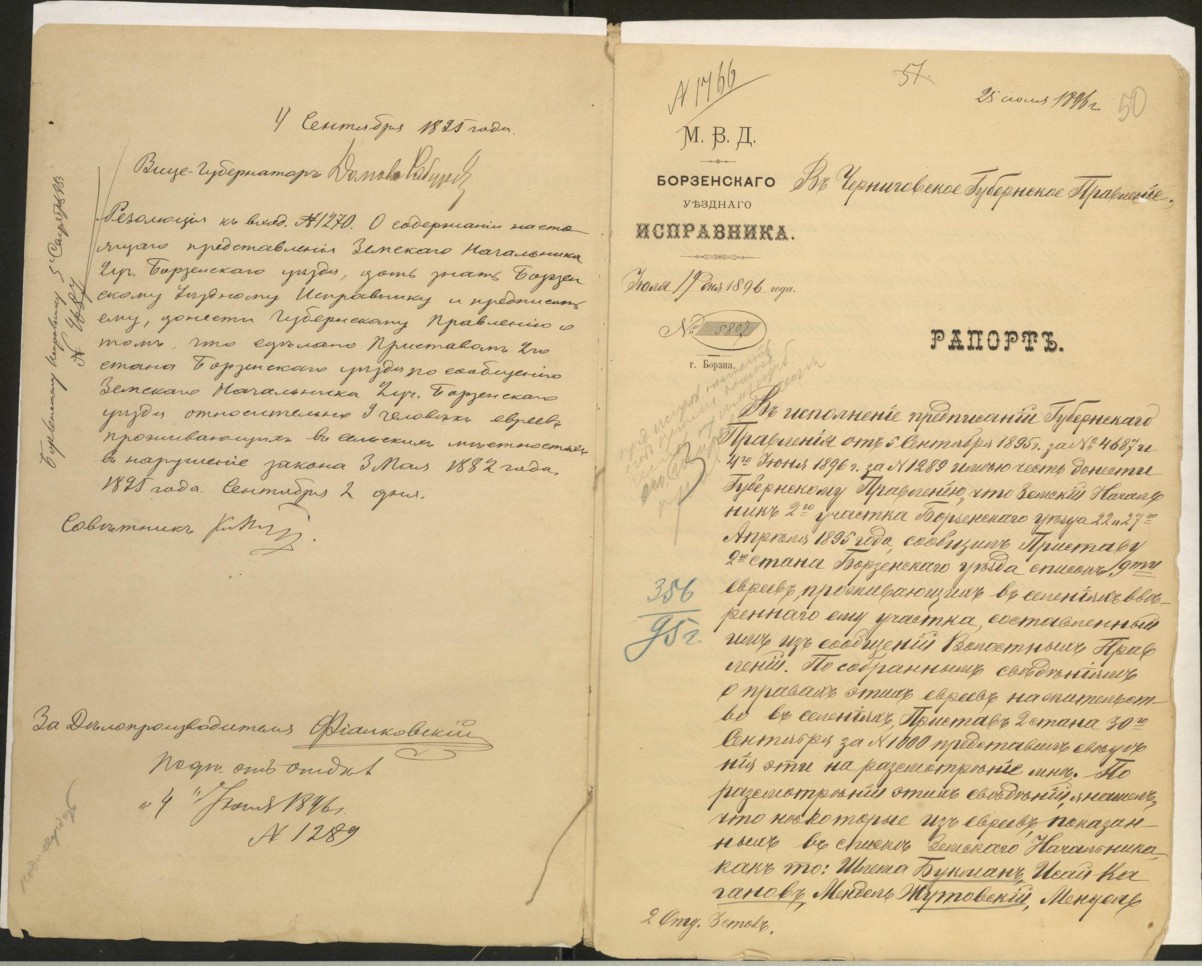 4 Сентября 1895 года.
Вице-Губернаторъ
Резолюція къ вход. №1270. О содержаніи насто-
ящаго представленія Земскаго Начальника
2 уч. Борзенскаго уѣзда, дать знать Борзен
скому Уѣздному Исправнику и предписать
ему, донести Губернскому Правленію о
томъ, что сдѣлано Приставомъ 2го
стана Борзенскаго уѣзда по сообщенію
Земскаго Начальника 2 уч. Борзенскаго
уѣзда относительно 9 человѣкъ евреевъ
проживающихъ въ сельскихъ мѣстностяхъ
въ нарушеніе закона 3 Мая 1882 года.
1895 года Сентября 2 дня.
Совѣтникъ
За Дѣлопроизводителя Фіалковскій
"4" Іюня 1896 г.
№ 1289
Борзенскому Исправнику 5 Сентября 95
№ 4687
№ 1766
51.
25 іюля 1896 г.
50
М. В. Д.
БОРЗЕНСКАГО
УѢЗДНАГО
ИСПРАВНИКА.
Въ Черниговское Губернское Правленіе.
Іюля 19 дня 1896 года.
№ 5807
г. Борзна.
РАПОРТЪ.
Въ исполненіе предписаній Губернскаго
Правленія отъ 5 Сентября 1895 г. за № 4687 и
4го Іюня 1896 г. за № 1289 имѣю честь донести
Губернскому Правленію, что Земскій Началь
никъ 2го участка Борзенскаго уѣзда 22 и 27го
Апрѣля 1895 года, сообщилъ Приставу
2го стана Борзенскаго уѣзда списокъ 9ти
евреевъ, проживающихъ въ селеніяхъ ввѣ-
реннаго ему участка, составленный
имъ изъ сообщеній Волостныхъ Прав
леній. По собраннымъ свѣдѣніямъ
о правахъ этихъ евреевъ на жительст-
во въ селеніяхъ, Приставъ 2 стана 30го
Сентября за № 1000 представилъ свѣдѣ
нія эти на разсмотрѣніе мнѣ. По
разсмотрѣніи этихъ свѣдѣній, я нашелъ,
что нѣкоторые изъ евреевъ, показан-
ныхъ въ спискѣ Земскаго Начальника,
какъ то: Шлема Букманъ, Исай Ка
гановъ, Мендель Жутовскій, Мендель
356
95 г.
2 Отд. Устовъ.